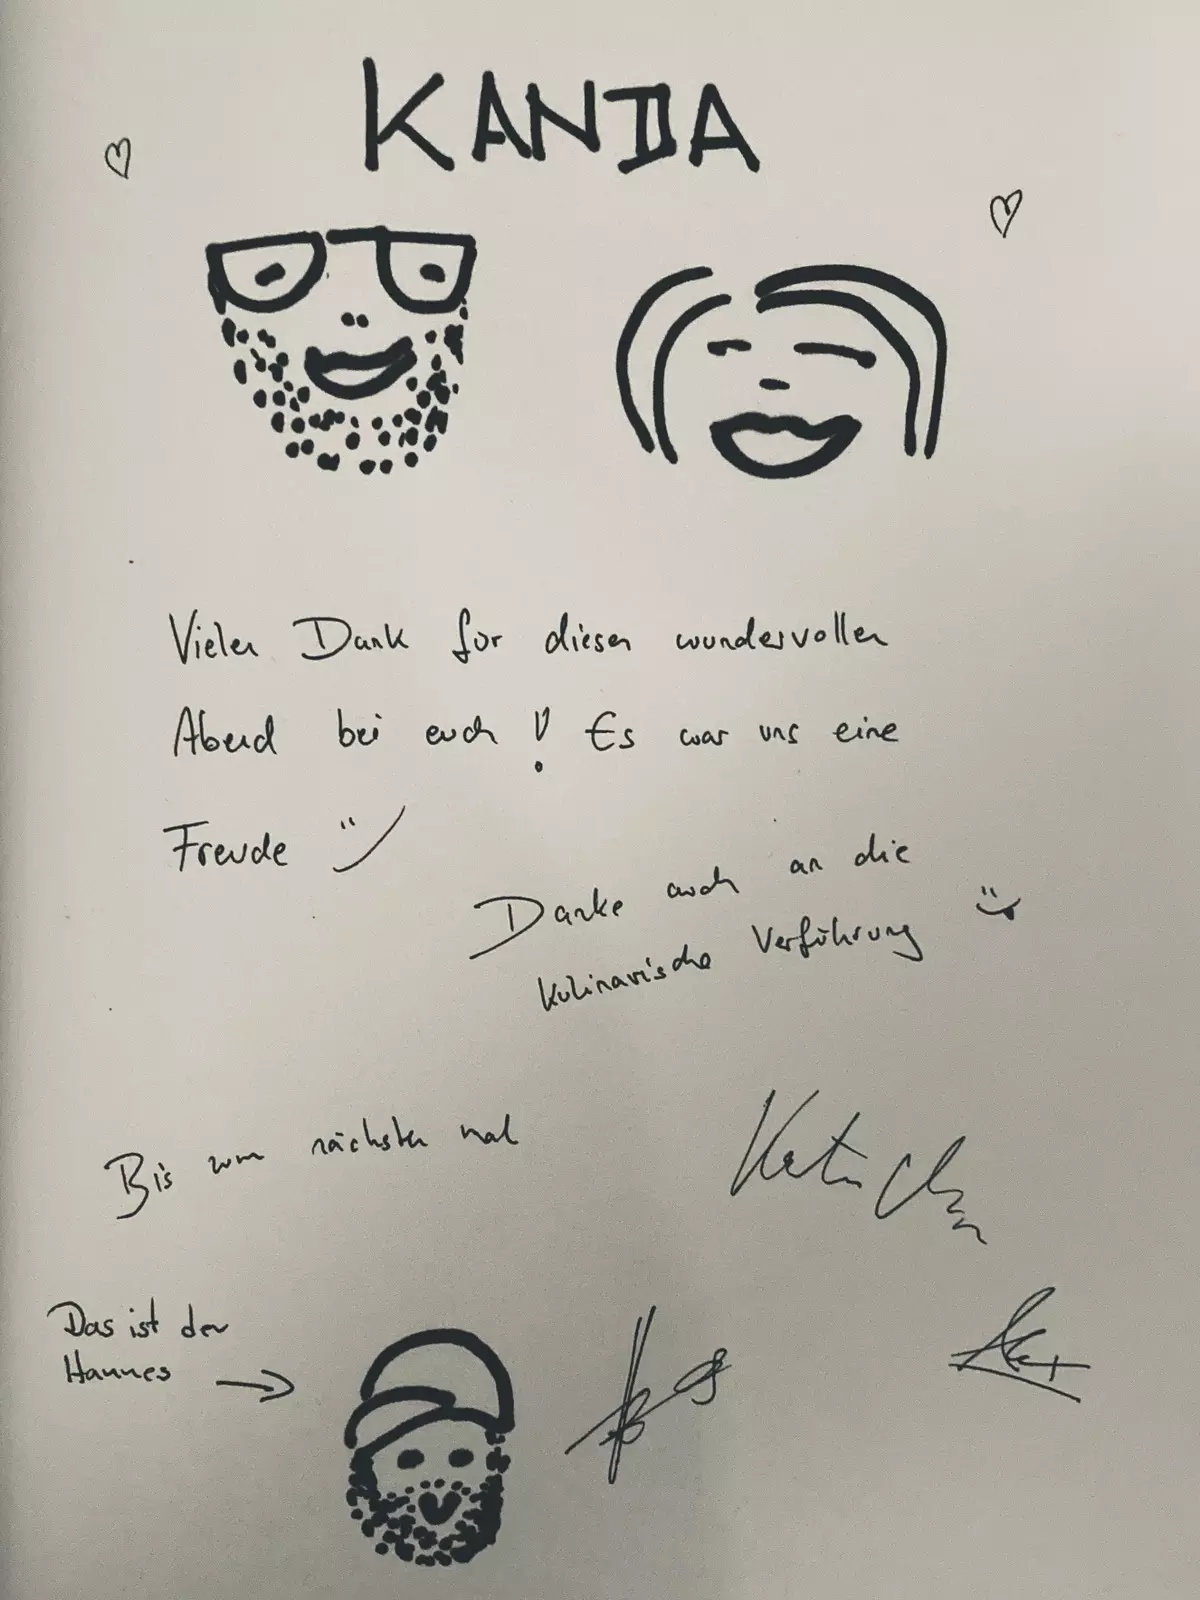 KANDA
Vielen Dank für diesen wundervollen
Abend bei euch! Es war uns eine
Freude
Danke auch an die
kulinarische Verführung
Bis zum nächsten mal
Das ist der
Hannes